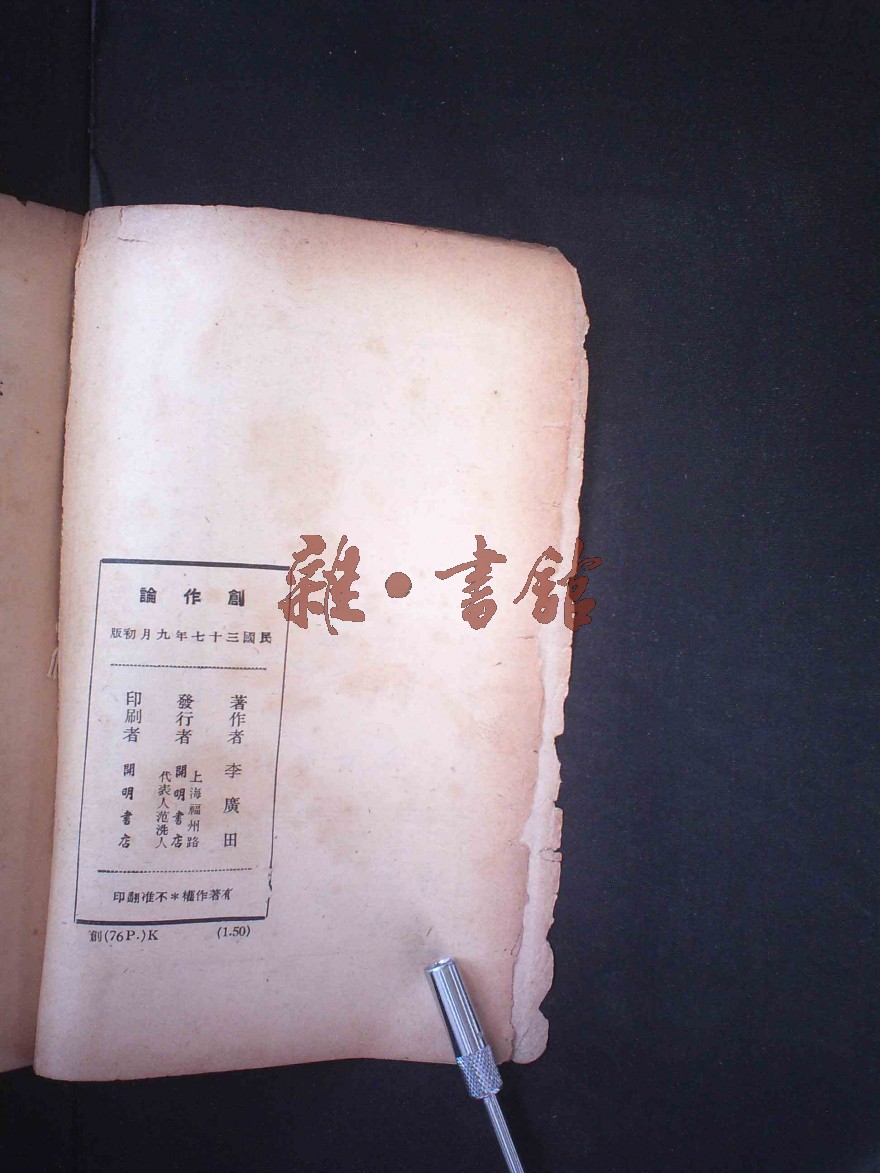 創作論
民國三十七年九月初版
著作者 李廣田
發行者 開明書店
上海福州路
代表人范洗人
印刷者 開明書店
有著作權＊不准翻印
創(76P.)K (1.50)
雜·書館